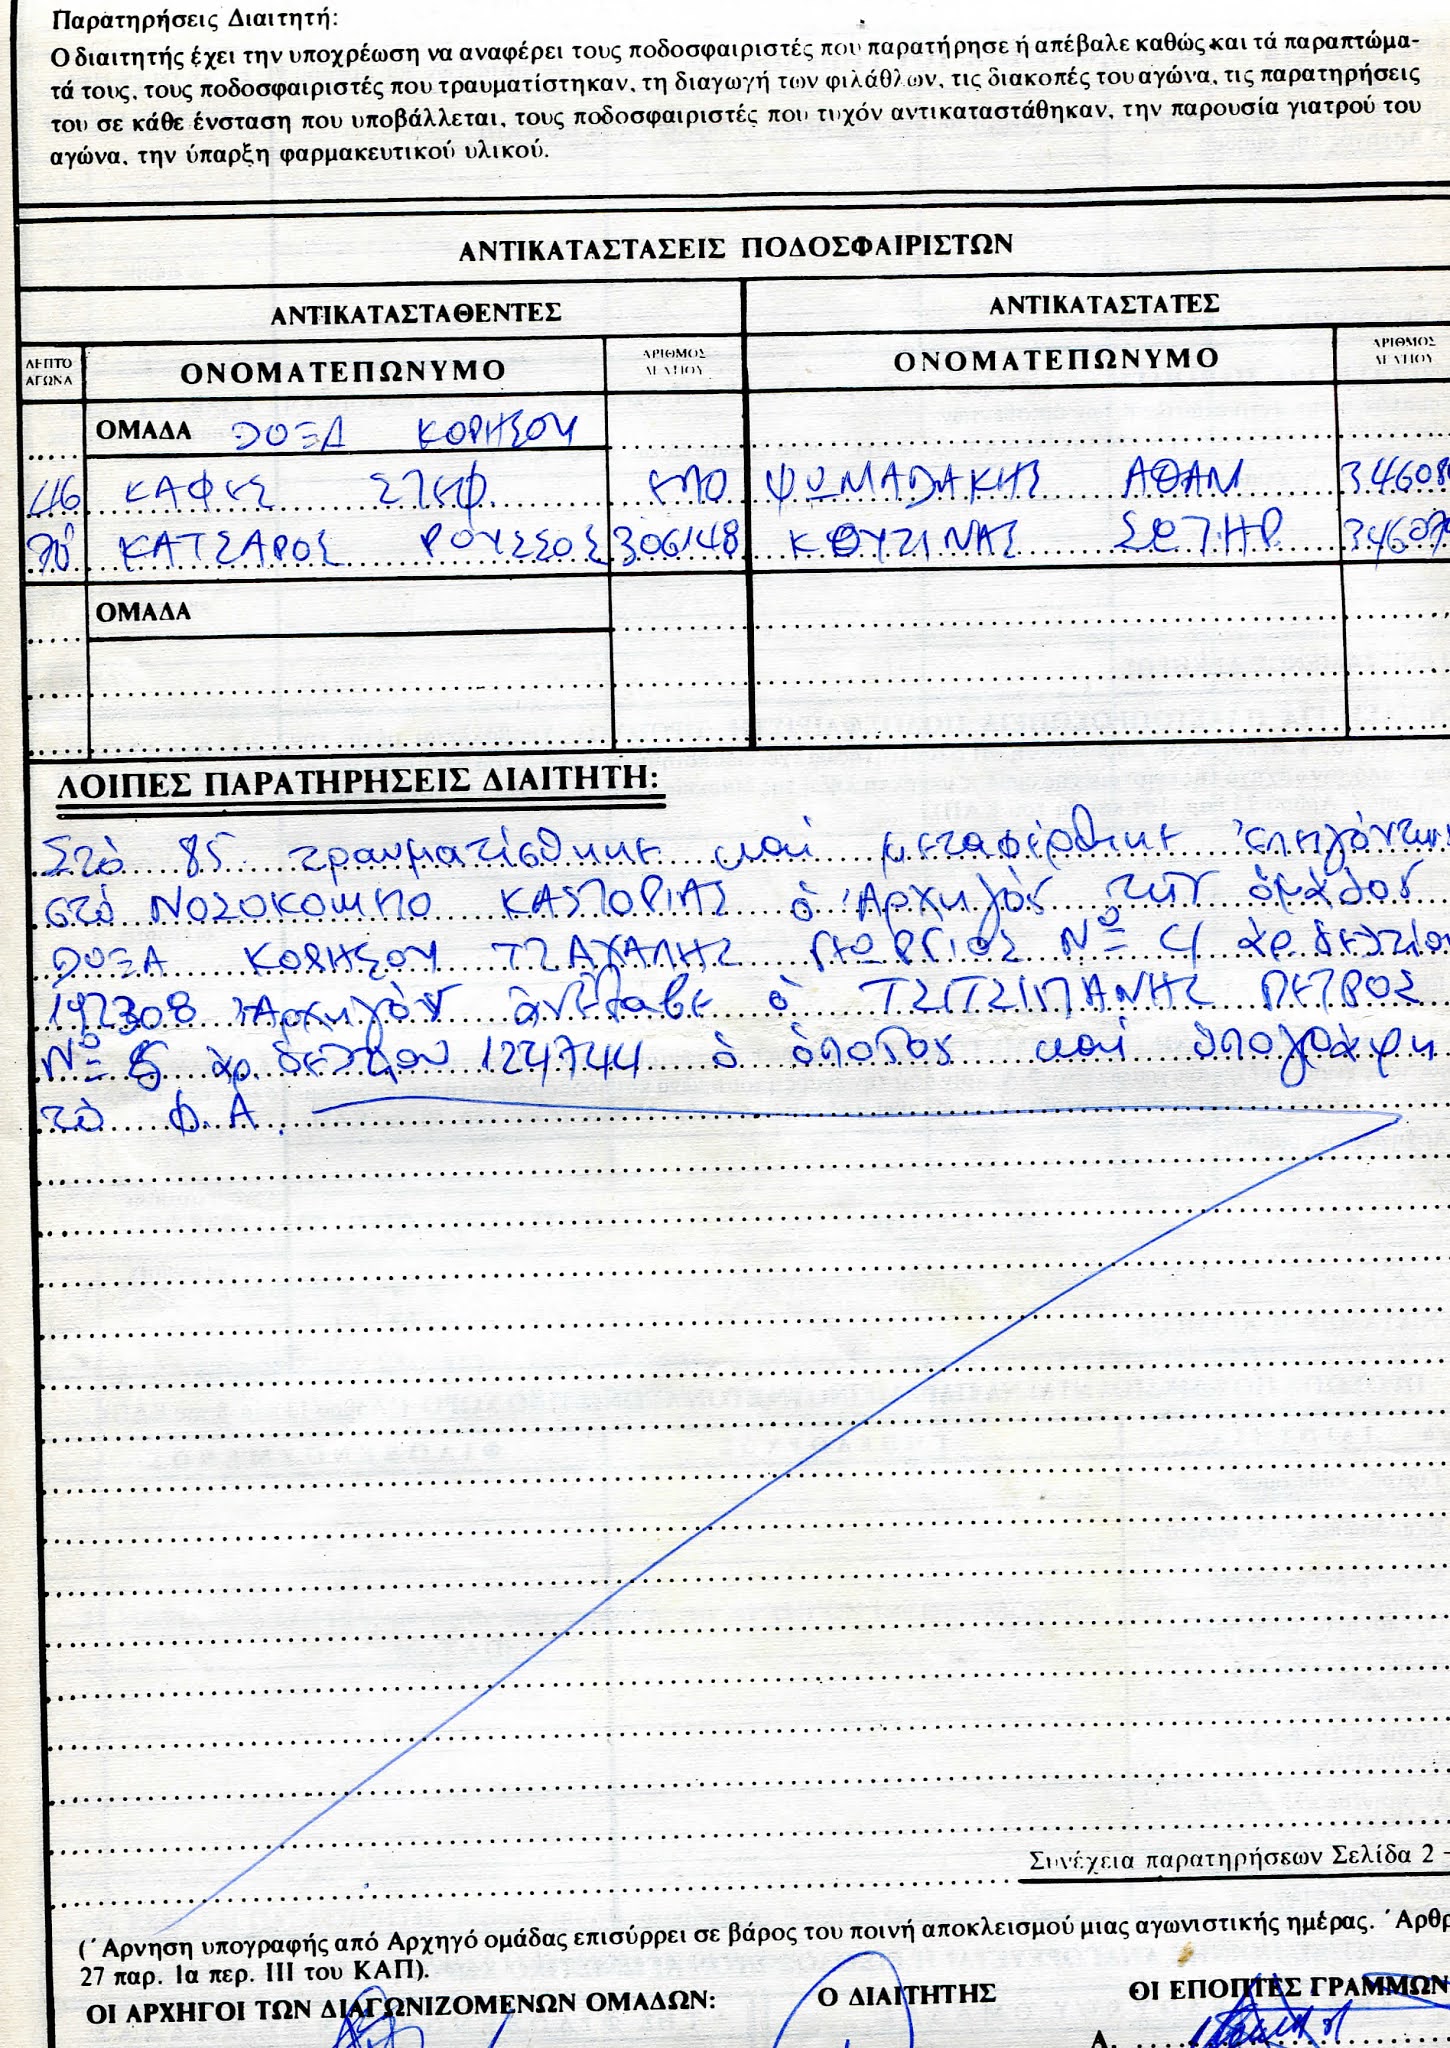 Παρατηρήσεις Διαιτητή:
Ο διαιτητής έχει την υποχρέωση να αναφέρει τους ποδοσφαιριστές που παρατήρησε ή απέβαλε καθώς και τά παραπτώμα-
τά τους, τους ποδοσφαιριστές που τραυματίστηκαν, τη διαγωγή των φιλάθλων, τις διακοπές του αγώνα, τις παρατηρήσεις
του σε κάθε ένσταση που υποβάλλεται, τους ποδοσφαιριστές που τυχόν αντικαταστάθηκαν, την παρουσία γιατρού του
αγώνα, την ύπαρξη φαρμακευτικού υλικού.
ΑΝΤΙΚΑΤΑΣΤΑΣΕΙΣ ΠΟΔΟΣΦΑΙΡΙΣΤΩΝ
ΑΝΤΙΚΑΤΑΣΤΑΘΕΝΤΕΣ ΑΝΤΙΚΑΤΑΣΤΑΤΕΣ
ΛΕΠΤΟ ΑΓΩΝΑ ΟΝΟΜΑΤΕΠΩΝΥΜΟ ΑΡΙΘΜΟΣ ΔΕΛΤΙΟΥ ΟΝΟΜΑΤΕΠΩΝΥΜΟ ΑΡΙΘΜΟΣ ΔΕΛΤΙΟΥ
ΟΜΑΔΑ ΔΟΞΑ ΚΟΡΗΣΟΥ
46 ΚΑΦΗΣ ΣΤΕΦ. ΑΠΟ ΨΩΜΑΔΑΚΗΣ ΑΘΑΝ 34608
70' ΚΑΤΣΑΡΟΣ ΡΟΥΣΣΟΣ 306148 ΚΟΥΖΙΝΑΣ ΣΩΤΗΡ 34607
ΟΜΑΔΑ
ΛΟΙΠΕΣ ΠΑΡΑΤΗΡΗΣΕΙΣ ΔΙΑΙΤΗΤΗ:
Στό 85 τραυματίσθηκε καί μεταφέρθηκε
στό ΝΟΣΟΚΟΜΕΙΟ ΚΑΣΤΟΡΙΑΣ ὁ Ἀρχηγός τῆς ὁμάδος
ΔΟΞΑ ΚΟΡΗΣΟΥ ΤΖΑΧΑΛΗΣ ΓΕΩΡΓΙΟΣ Νº ἀρ. δελτίου
192308 Ἀρχηγός ἀνέλαβε ὁ ΤΣΙΤΣΙΠΑΝΗΣ ΠΕΤΡΟΣ
Νº 5 ἀρ. δελτίου 124744 ὁ ὁποῖος καί ὑπογράφει
τό Φ.Α.
Συνέχεια παρατηρήσεων Σελίδα 2 -
(΄Αρνηση υπογραφής από Αρχηγό ομάδας επισύρρει σε βάρος του ποινή αποκλεισμού μιας αγωνιστικής ημέρας. ΄Αρθρ
27 παρ. 1α περ. ΙΙΙ του ΚΑΠ).
ΟΙ ΑΡΧΗΓΟΙ ΤΩΝ ΔΙΑΓΩΝΙΖΟΜΕΝΩΝ ΟΜΑΔΩΝ: Ο ΔΙΑΙΤΗΤΗΣ ΟΙ ΕΠΟΠΤΕΣ ΓΡΑΜΜΩΝ
Α.